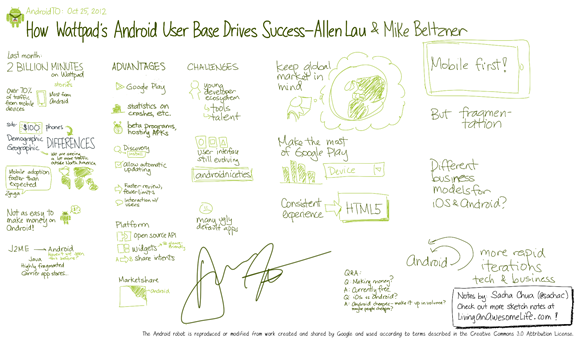 AndroidTO: Oct 25, 2012
How Wattpad's Android User Base Drives Success-Allen Lau & Mike Beltzner
Last month:
2 BILLION MINUTES
on Wattpad
Over 70%
of traffic
from mobile
devices
Most from
Android
$100 phones
Demographic
Geographic
DIFFERENCES
Mobile adoption
faster than
expected
Not as easy to
make money on
Android!
J2ME → Android
Java
Highly fragmented
Carrier app stores...
ADVANTAGES
Google Play
statistics on
crashes, etc.
beta programs,
hosting APKs
Discovery
allow automatic
updating
Faster review,
fewer limits
Interaction w/
users
Platform
open source API
widgets
share intents
Marketshare
android
CHALLENGES
young
developer
ecosystem
tools
talent
user interface
still evolving
androidniceties
many ugly
default apps
keep global
market in
mind
Make the most
of Google Play
Device
Consistent
experience
HTML5
Mobile first!
But fragmen-
tation
Different
business
models for
iOS & Android?
Android
more rapid
iterations
tech & business
Q&A:
Q: Making money?
A: Currently free
Q: iOS vs Android?
A: Android cheaper - make it up in volume?
Notes by: Sacha Chua (@sachac)
Check out more sketch notes at
LivingAnAwesomeLife.com!
The Android robot is reproduced or modified from work created and shared by Google and used according to terms described in the Creative Commons 3.0 Attribution License.